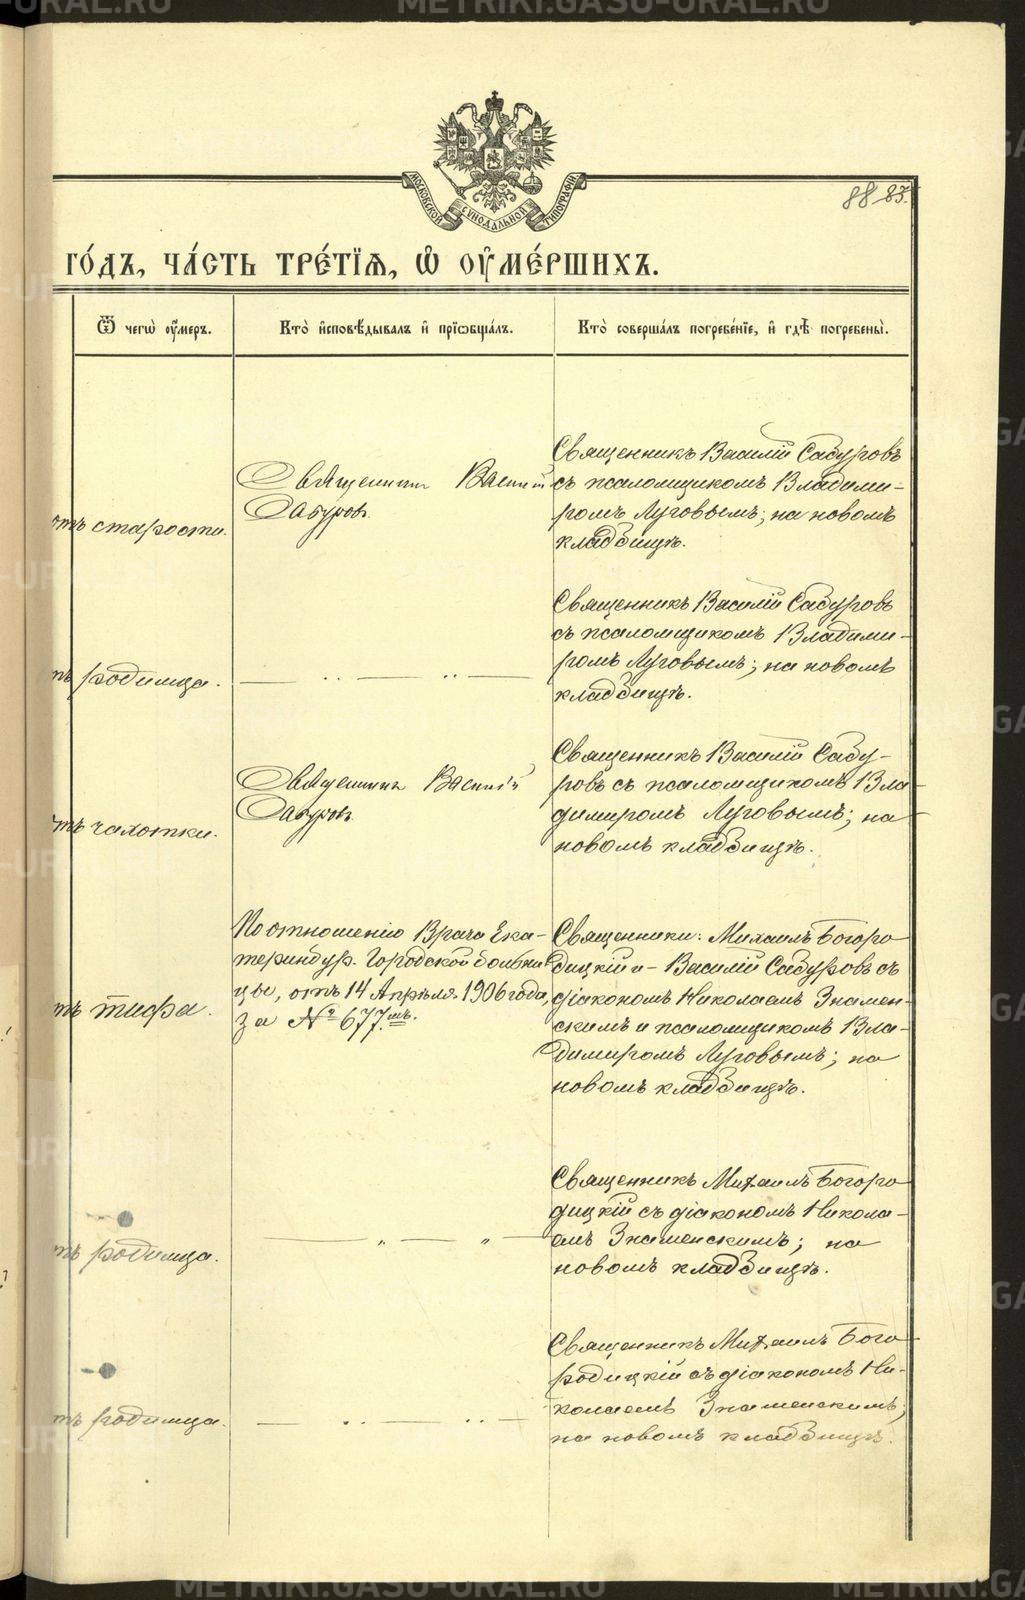 МОСКОВСКОЙ СѴНОДАЛЬНОЙ ТИПОГРАФІИ
88 87.
ГО́ДЪ, ЧА́СТЬ ТРЕ́ТІѦ, Ѡ҆ ОУ҆МЕ́РШИХЪ.
Ѿ чегѡ̀ оу҆́меръ.
Кто̀ и҆сповѣ́дывалъ и҆ прїѡбща́лъ.
Кто̀ соверша́лъ погребе́нїе, и҆ гдѣ̀ погребены̀.
отъ старости.
Священникъ Василій
Сабуровъ
Священникъ Василій Сабуровъ
съ псаломщикомъ Владими-
ромъ Луговымъ; на новомъ
кладбищѣ.
тъ родимца.
— „ — „ —
Священникъ Василій Сабуровъ
съ псаломщикомъ Владими-
ромъ Луговымъ; на новомъ
кладбищѣ.
тъ чахотки.
Священникъ Василій
Сабуровъ
Священникъ Василій Сабу-
ровъ съ псаломщикомъ Вла-
димиромъ Луговымъ; на
новомъ кладбищѣ.
тъ тифа.
По отношенію Врача Ека-
теринбур. Городской больни
цы, отъ 14 Апрѣля 1906 года,
за № 677мъ.
Священники: Михаилъ Богоро
дицкій и Василій Сабуровъ съ
діакономъ Николаемъ Знамен-
скимъ и псаломщикомъ Вла-
димиромъ Луговымъ; на
новомъ кладбищѣ.
тъ родимца.
— „ — „ —
Священникъ Михаилъ Богоро
дицкій съ діакономъ Никола-
емъ Знаменскимъ; на
новомъ кладбищѣ.
тъ родимца.
— „ — „ —
Священникъ Михаилъ Бого
родицкій съ діакономъ Ни-
колаемъ Знаменскимъ;
на новомъ кладбищѣ.
METRIKI.GASU-URAL.RU